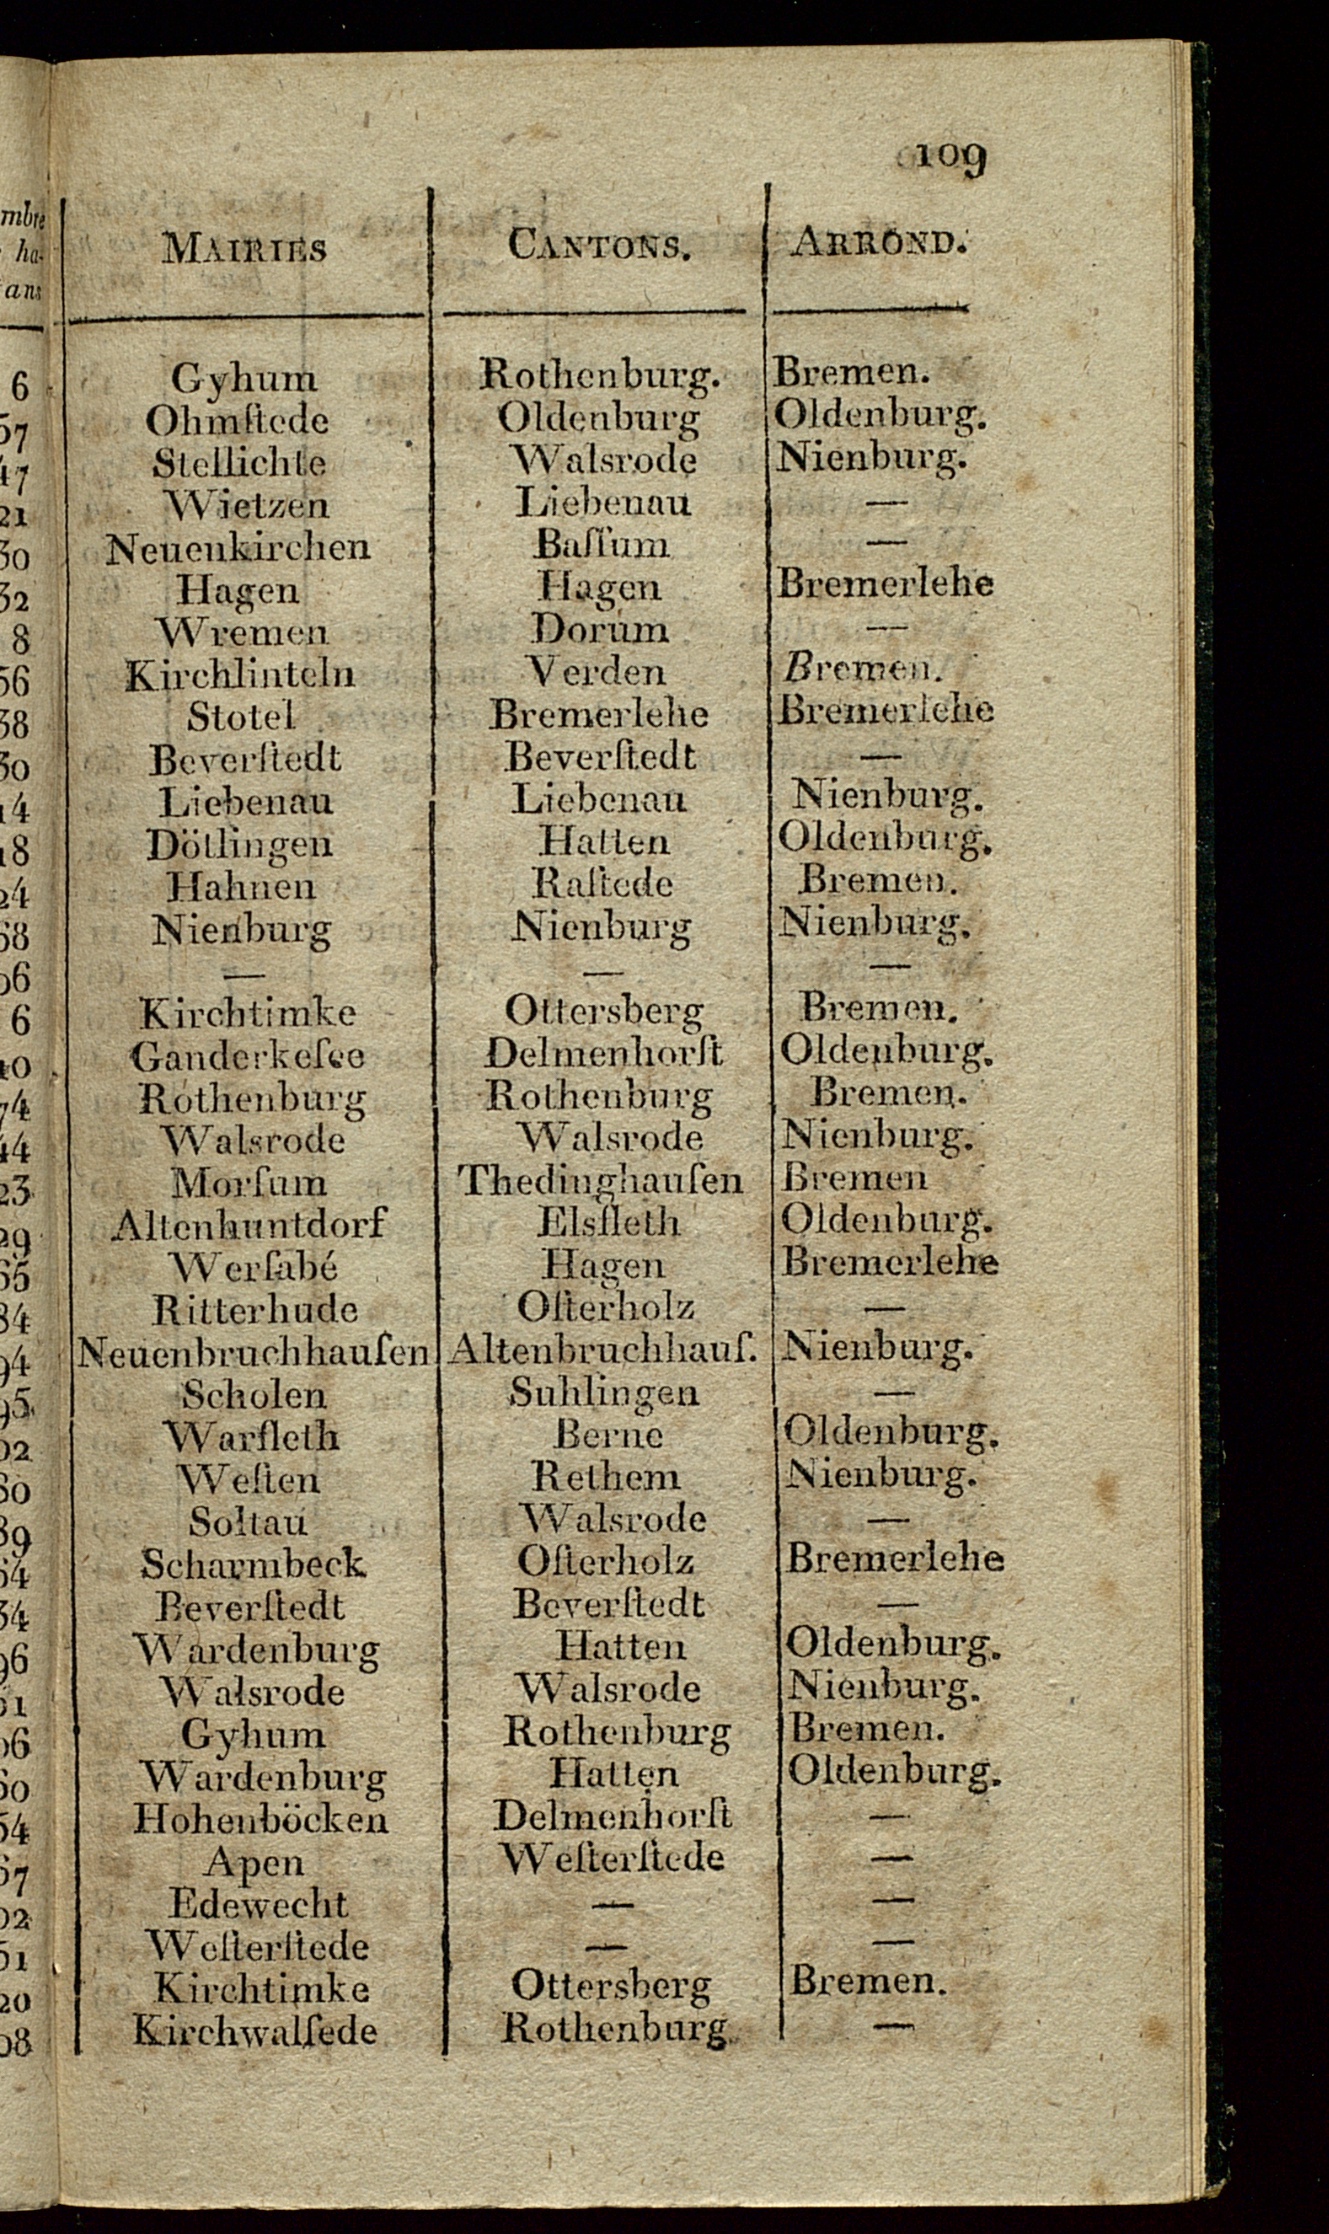 109
MAIRIES CANTONS. ARROND.
Gyhum Rothenburg. Bremen.
Ohmſtede Oldenburg Oldenburg.
Stellichte Walsrode Nienburg.
Wietzen Liebenau —
Neuenkirchen Baſſum —
Hagen Hagen Bremerlehe
Wremen Dorum —
Kirchlinteln Verden Bremen.
Stotel Bremerlehe Bremerlehe
Beverſtedt Beverſtedt —
Liebenau Liebenau Nienburg.
Dötlingen Hatten Oldenburg.
Hahnen Raſtede Bremen.
Nienburg Nienburg Nienburg.
— — —
Kirchtimke Ottersberg Bremen.
Ganderkeſee Delmenhorſt Oldenburg.
Rothenburg Rothenburg Bremen.
Walsrode Walsrode Nienburg.
Morſum Thedinghauſen Bremen
Altenhuntdorf Elsfleth Oldenburg.
Werſabé Hagen Bremerlehe
Ritterhude Oſterholz —
Neuenbruchhauſen Altenbruchhauſ. Nienburg.
Scholen Suhlingen —
Warfleth Berne Oldenburg.
Weſten Rethem Nienburg.
Soltau Walsrode —
Scharmbeck Oſterholz Bremerlehe
Beverſtedt Beverſtedt —
Wardenburg Hatten Oldenburg.
Walsrode Walsrode Nienburg.
Gyhum Rothenburg Bremen.
Wardenburg Hatten Oldenburg.
Hohenböcken Delmenhorſt —
Apen Weſterſtede —
Edewecht — —
Weſterſtede — —
Kirchtimke Ottersberg Bremen.
Kirchwalſede Rothenburg —